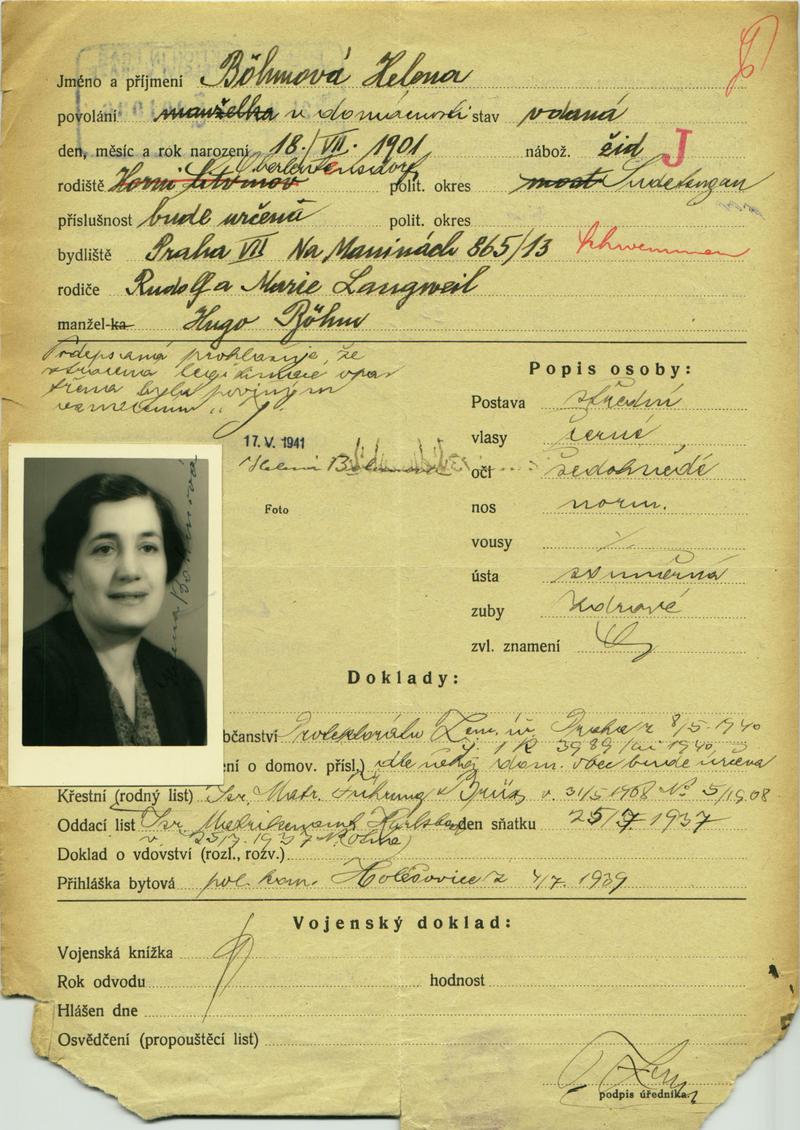 Jméno a příjmení Böhmová Helena
povolání manželka v domácnosti stav vdaná
den, měsíc a rok narození 18./VII. 1901 nábož. žid J
rodiště Horní Litvínov Oberleutensdorf polit. okres most Sudetengau
příslušnost bude určena polit. okres
bydliště Praha VII Na Maninách 865/13
rodiče Rudolf a Marie Langweil
manžel-ka Hugo Böhm
Podepsaná prohlašuje, že
ztracena legitimace opa-
třena byla povinným
17. V. 1941
Helena Böhmová
Foto
Helena Böhmová
Popis osoby:
Postava střední
vlasy černé
oči šedohnědé
nos norm.
vousy
ústa souměrná
zuby zdravé
zvl. znamení
Doklady:
bčanství Protektorátu Zem. úř. Praha z 8/5 1940
1940
ení o domov. přísl.) dle něhož dom. obec bude určena
Křestní (rodný list) Isr. Matr. Führung Brüx v. 31/5 1908 No 5/1908
Oddací list Isr. Matrikenamt Karlsbad den sňatku 25/7 1937
v 25/7 1937
Doklad o vdovství (rozl., rozv.)
Přihláška bytová pol. kom. Holešovice z 4/7. 1939
Vojenský doklad:
Vojenská knížka
Rok odvodu hodnost
Hlášen dne
Osvědčení (propouštěcí list)
podpis úředníka.